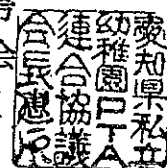 愛知県私立
幼稚園PTA
連合協議
会長